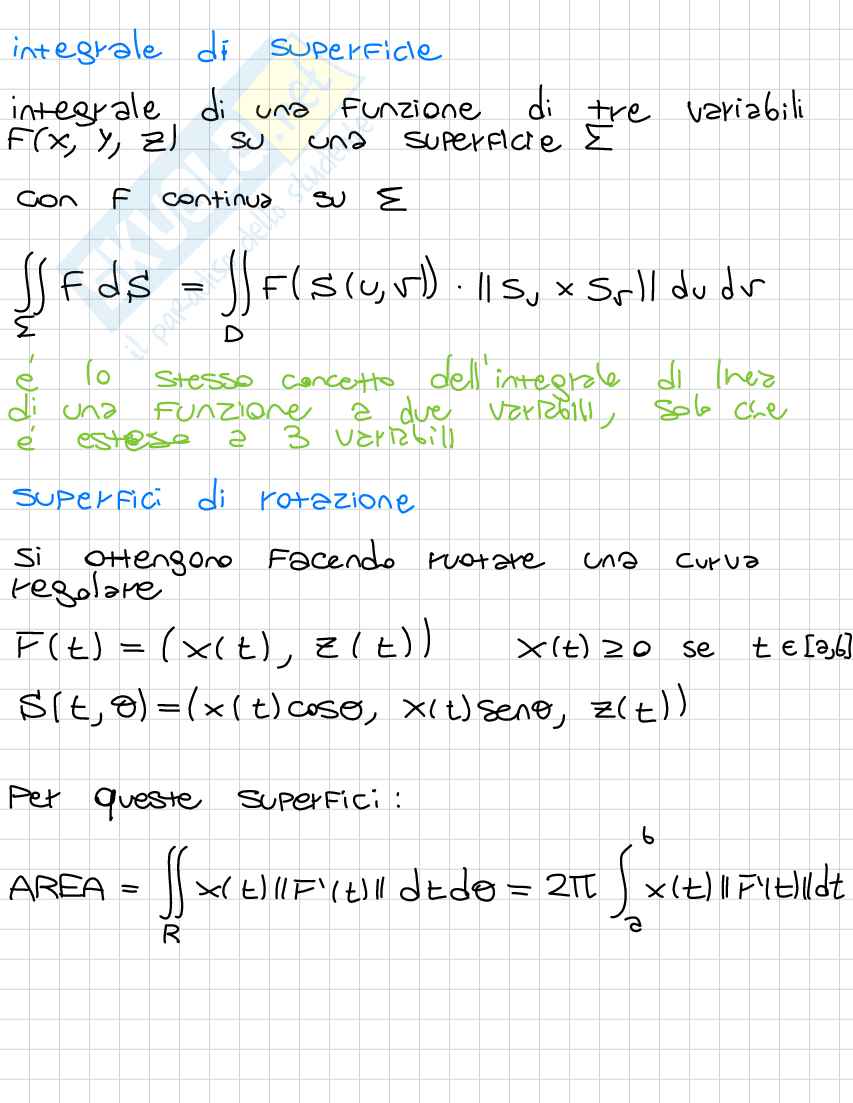 integrale di superficie
integrale di una funzione di tre variabili
F(x, y, z) su una superficie Σ
con F continua su Σ
∬_Σ F dS = ∬_D F(S(u,v)) · ||S_u × S_v|| du dv
é lo stesso concetto dell'integrale di linea
di una funzione a due variabili, solo che
é esteso a 3 variabili
superfici di rotazione
Si ottengono facendo ruotare una curva
regolare
F(t) = (x(t), z(t)) x(t) ≥ 0 se t ∈ [a,b]
S(t, θ) = (x(t)cosθ, x(t)senθ, z(t))
Per queste superfici:
AREA = ∬_R x(t) ||F'(t)|| dt dθ = 2π ∫_a^b x(t) ||F'(t)|| dt
SKUOLA.net
il paradiso dello studente